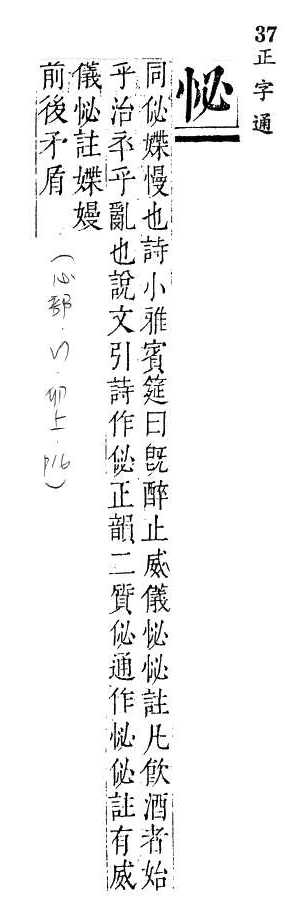 37正字通
怭
同佖媟慢也詩小雅賓筵曰旣醉止威儀怭怭註凡飮酒者始
乎治卒乎亂也說文引詩作佖正韻二質佖通作怭佖註有威
儀怭註媟嫚
前後矛盾
(心部.卯上.P16)